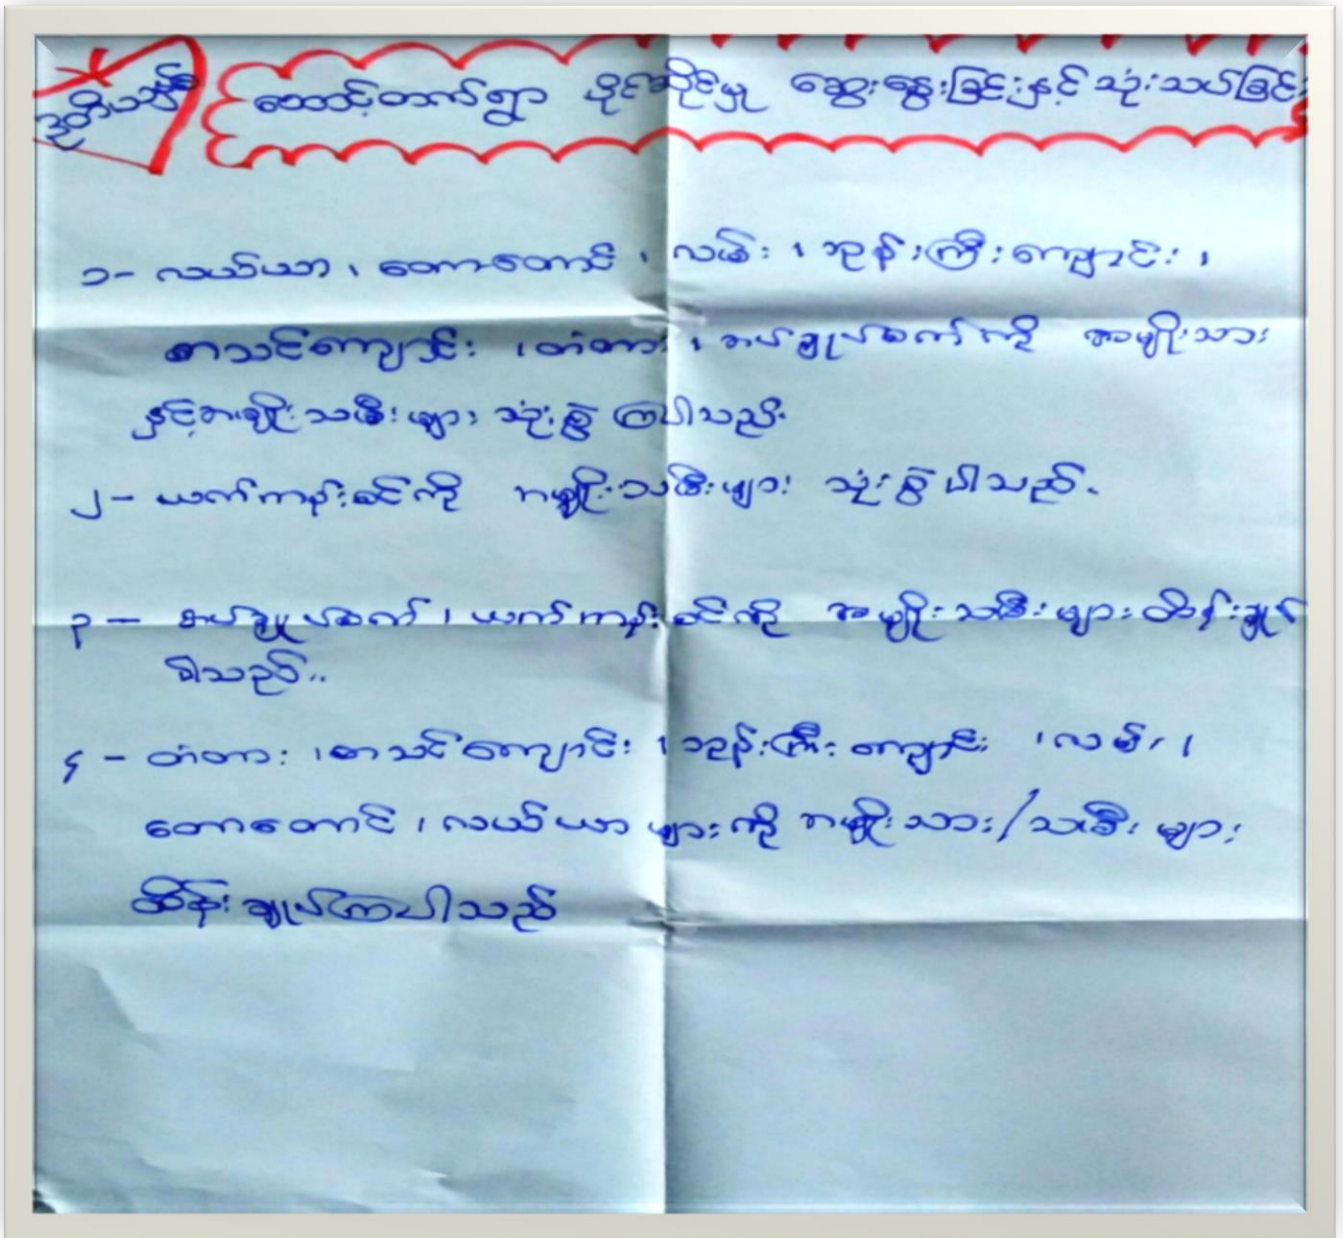 ဒုတိယနှစ်
ထောင့်တက်ရွာ ပိုင်ဆိုင်မှု ဆွေးနွေးခြင်းနှင့် သုံးသပ်ခြင်း
၁- လယ်ယာ ၊ တောတောင် ၊ လမ်း ၊ ဘုန်းကြီးကျောင်း ၊
စာသင်ကျောင်း ၊ တံတား ၊ စပ်ချုပ်စက်ကို အမျိုးသား
နှင့်အမျိုးသမီးများ သုံးစွဲကြပါသည်.
၂- ယက်ကန်းစင်ကို အမျိုးသမီးများ သုံးစွဲပါသည်.
၃- စပ်ချုပ်စက် ၊ ယက်ကန်းစင်ကို အမျိုးသမီးများ ထိန်းချုပ်
ပါသည်..
၄- တံတား ၊ စာသင်ကျောင်း ၊ ဘုန်းကြီးကျောင်း ၊ လမ်း ၊
တောတောင် ၊ လယ်ယာများကို အမျိုးသား/သမီးများ
ထိန်းချုပ်ကြပါသည်